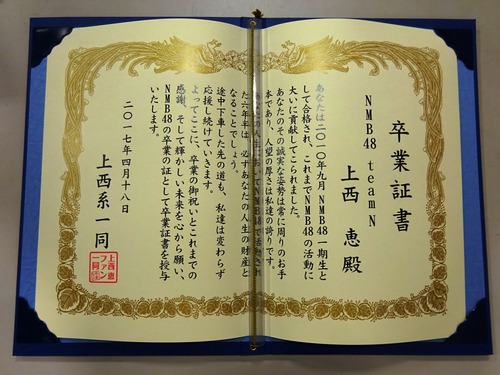 卒業証書
NMB48 teamN
上西 恵殿
あなたは二〇一〇年九月NMB48一期生と
して合格され、これまでNMB48の活動に
大いに貢献してこられました。
あなたのその誠実な姿勢は常に周りのお手
本であり、人望の厚さは私達の誇りです。
あなたの人生においてNMB48で活動され
た六年半は、必ずあなたの人生の財産と
なることでしょう。
途中下車した先の道も、私達は変わらず
応援し続けていきます。
よってここに、卒業の御祝いとこれまでの
感謝、そして輝かしい未来を心から願い、
NMB48の卒業の証として卒業証書を授与
いたします。
二〇一七年四月十八日
上西系一同
上西恵
ファン
一同